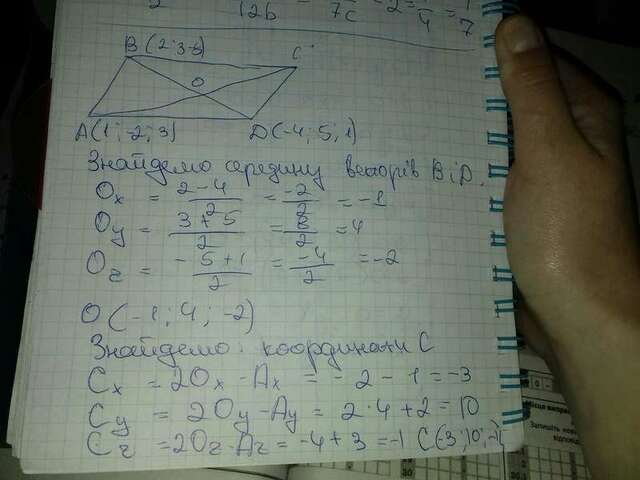 12b 7c = 2 = 4 = 7
B (2; 3; -5) C
O
A(1; -2; 3) D(-4; 5; 1)
Знайдемо середину векторів B і D.
Ox = (2-4)/2 = -2/2 = -1
Oy = (3+5)/2 = 8/2 = 4
Oz = (-5+1)/2 = -4/2 = -2
O (-1; 4; -2)
Знайдемо координати C
Cx = 2Ox - Ax = -2 - 1 = -3
Cy = 2Oy - Ay = 2·4 + 2 = 10
Cz = 2Oz - Az = -4 + 3 = -1 C(-3; 10; -1)